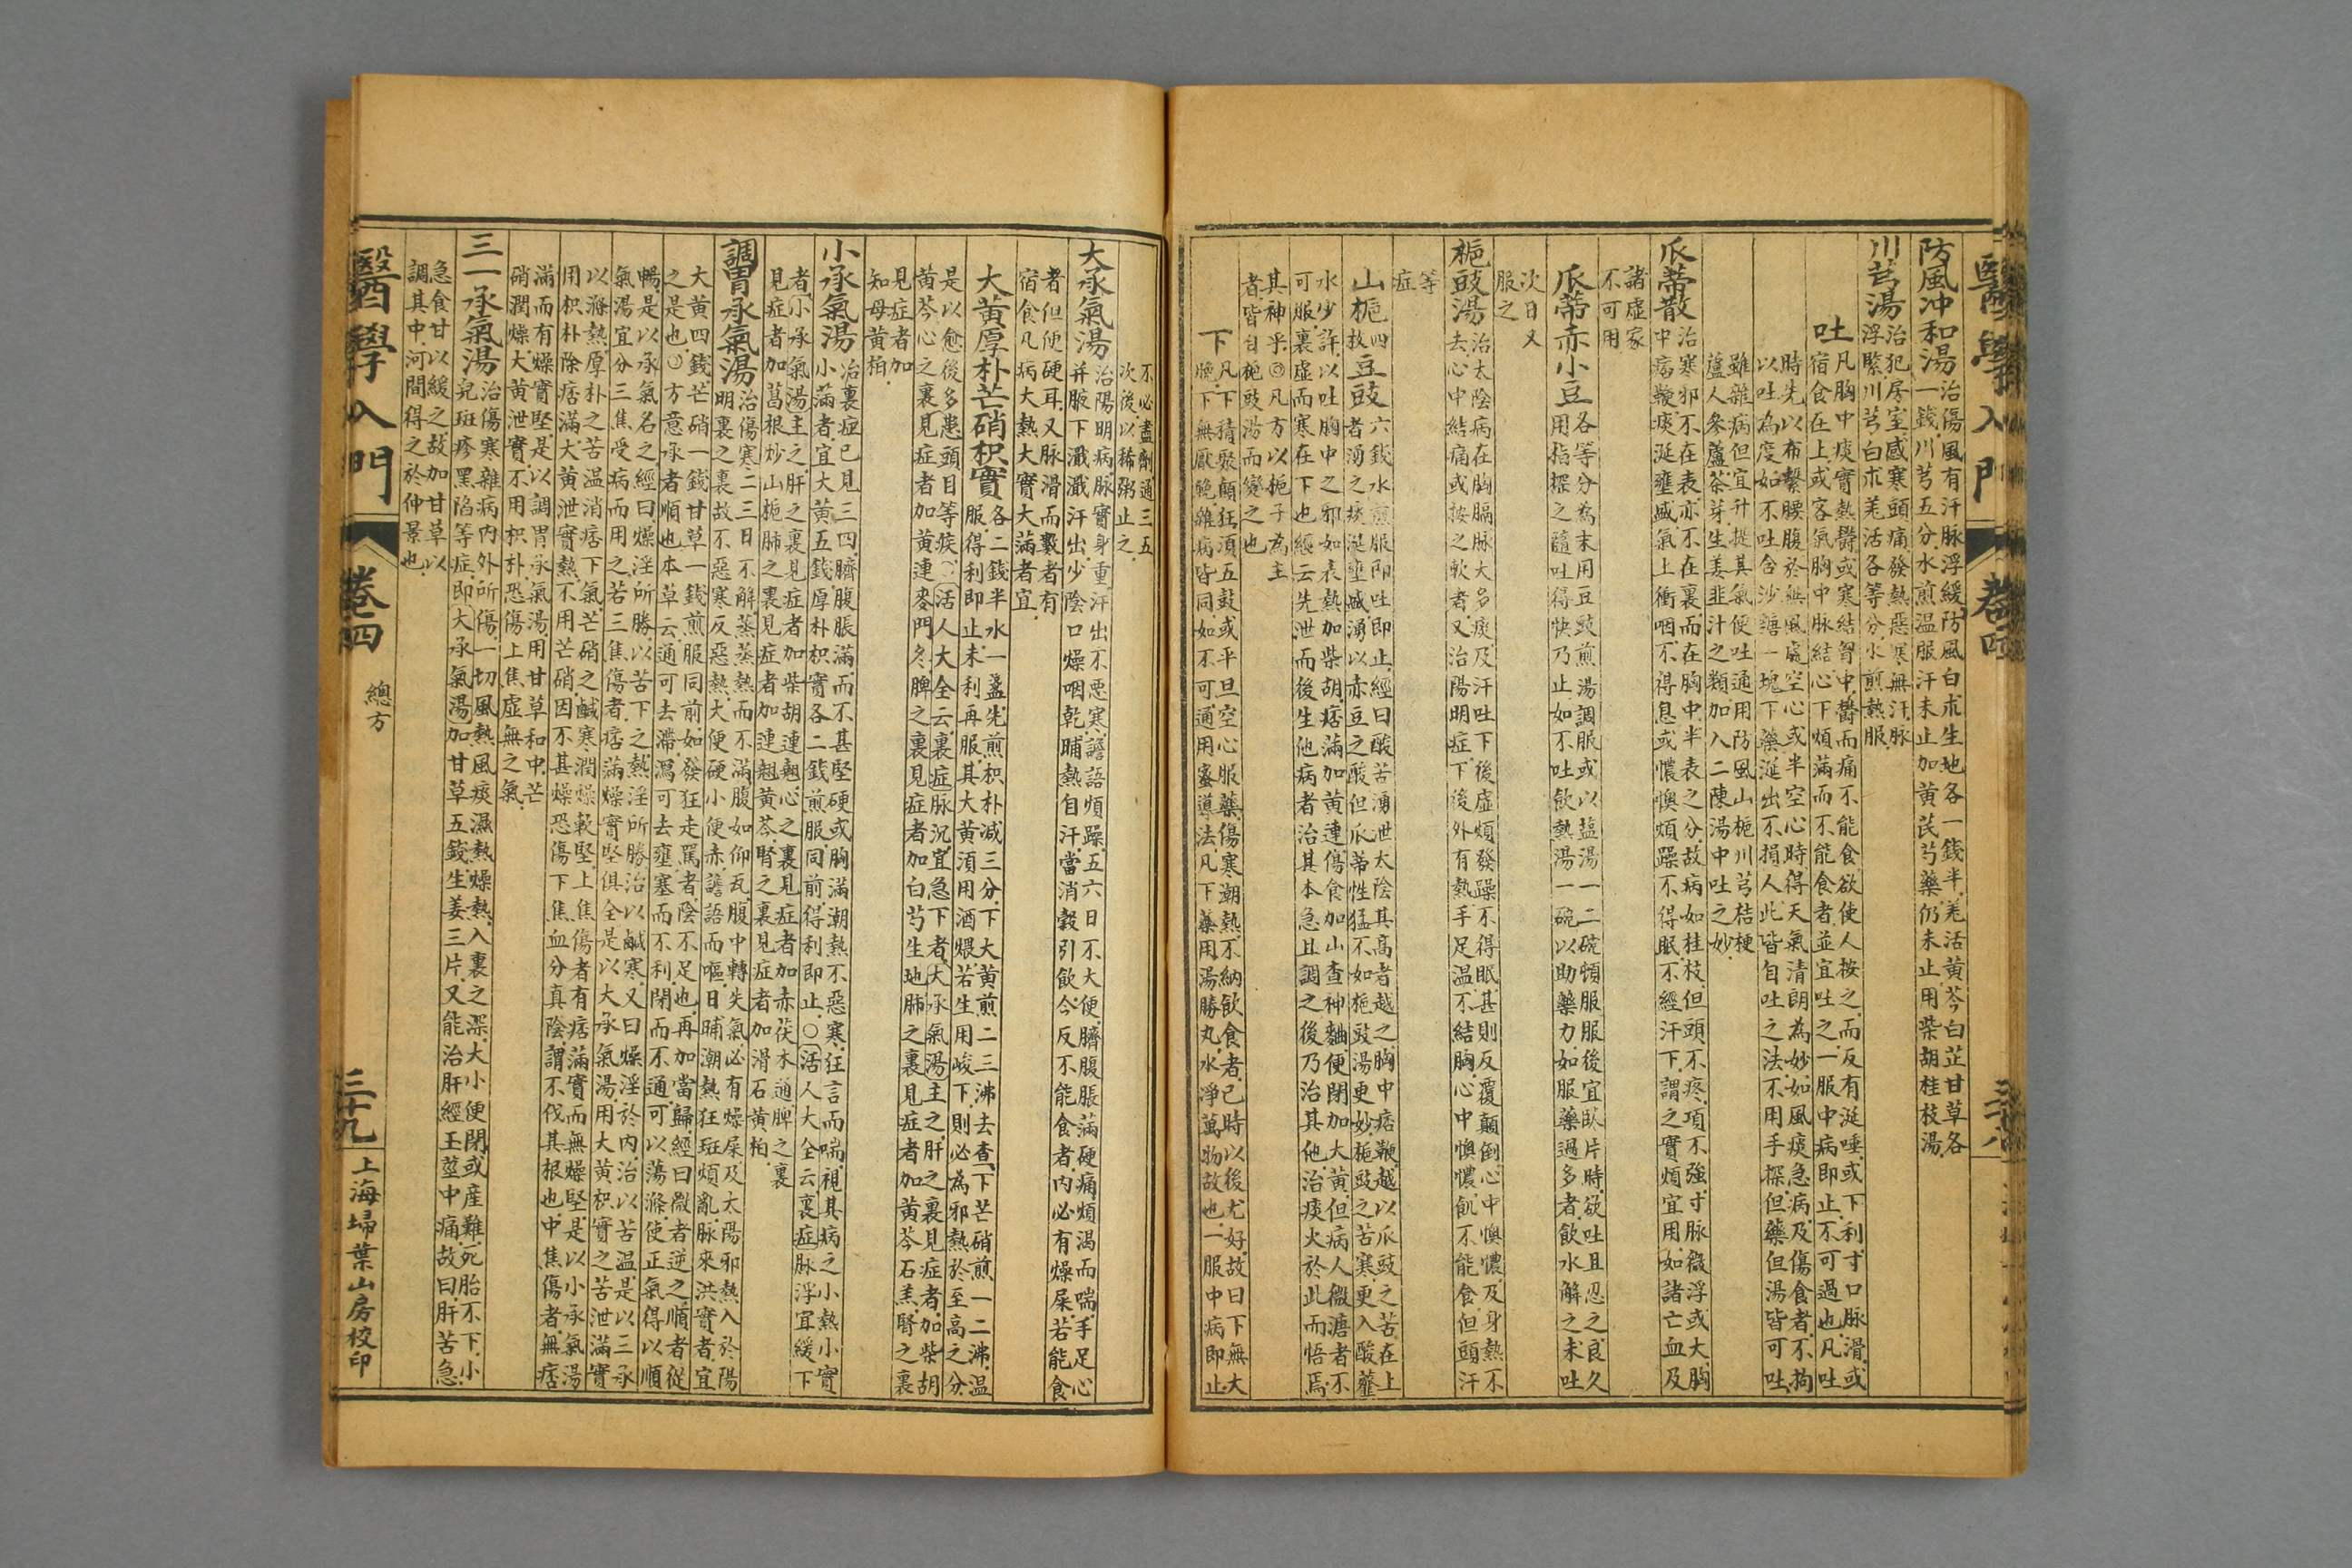 醫學入門
卷四
防風冲和湯治傷風有汗脉浮緩防風白朮生地各一錢半羌活黃芩白芷甘草各
一錢川芎五分水煎溫服汗未止加黃芪芍藥仍未止用柴胡桂枝湯
川芎湯治犯房室感寒頭痛發熱惡寒無汗脉
浮緊川芎白朮羌活各等分水煎熱服
吐凡胸中痰實熱鬱或寒結胷中鬱而痛不能食欲使人按之而反有涎唾或下利寸口脉滑或
宿食在上或客氣胸中脉結心下煩滿而不能食者並宜吐之一服中病即止不可過也凡吐
時先以布繫腰腹於無風處空心或半空心時得天氣清朗為妙如風痰急病及傷食者不拘
以吐為度如不吐含沙糖一塊下藥涎出不損人此皆自吐之法不用手探但藥但湯皆可吐
雖雜病但宜升提其氣便吐通用防風山梔川芎桔梗
蘆人參蘆茶芽生姜韭汁之類加入二陳湯中吐之妙
瓜蒂散治寒邪不在表亦不在裏而在胸中半表之分故病如桂枝但頭不疼項不強寸脉微浮或大胸
中痞鞕痰涎壅盛氣上衝咽不得息或懷憹煩躁不得眠不經汗下謂之實煩宜用如諸亡血及
諸虛家
不可用
瓜蒂赤小豆各等分為末用豆豉煎湯調服或以盐湯一二碗頓服服後宜臥片時欲吐且忍之良久
用指探之隨吐得快乃止如不吐飲熱湯一碗以助藥力如服藥過多者飲水解之未吐
次日又
服之
梔豉湯治太陰病在胸膈脉大多痰及汗吐下後虛煩發躁不得眠甚則反覆顛倒心中懊憹及身熱不
去心中結痛或按之軟者又治陽明症下後外有熱手足溫不結胸心中懊憹飢不能食但頭汗
等
症
山梔四枚豆豉六錢水煎服即吐即止經曰酸苦湧泄太陰其高者越之胸中痞鞕越以瓜豉之苦在上
者湧之痰涎壅盛湧以赤豆之酸但瓜蒂性猛不如梔豉湯更妙梔豉之苦寒更入酸虀
水少許以吐胸中之邪如表熱加柴胡痞滿加黃連傷食加山查神麯便閉加大黃但病人微溏者不
可服裏虛而寒在下也經云先泄而後生他病者治其本急且調之後乃治其他治痰火於此而悟焉
其神乎◎凡方以梔子為主
者皆自梔豉湯而變之也
下凡下積聚顛狂須五鼓或平旦空心服藥傷寒潮熱不納飲食者巳時以後尤好故曰下無大
晚下無厭晚雜病皆同如不可通用蜜導法凡下藥用湯勝丸水淨萬物故也一服中病即止
不必盡劑通三五
次後以稀粥止之
大承氣湯治陽明病脉實身重汗出不惡寒譫語煩躁五六日不大便臍腹脹滿硬痛煩渴而喘手足心
并腋下濈濈汗出少陰口燥咽乾晡熱自汗當消穀引飲今反不能食者內必有燥屎若能食
者但便硬耳又脉滑而數者有
宿食凡病大熱大實大滿者宜
大黃厚朴芒硝枳實各二錢半水一盞先煎枳朴減三分下大黃煎二三沸去查下芒硝煎一二沸溫
服得利即止未利再服其大黃須用酒煨若生用峻下則必為邪熱於至高之分
是以愈後多患頭目等疾○活人大全云裏症脉沉宜急下者大承氣湯主之肝之裏見症者加柴胡
黃芩心之裏見症者加黃連麥門冬脾之裏見症者加白芍生地肺之裏見症者加黃芩石羔腎之裏
見症者加
知母黃柏
小承氣湯治裏症已見三四臍腹脹滿而不甚堅硬或胸滿潮熱不惡寒狂言而喘視其病之小熱小實
小滿者宜大黃五錢厚朴枳實各二錢煎服同前得利即止○活人大全云裏症脉浮宜緩下
者小承氣湯主之肝之裏見症者加柴胡連翹心之裏見症者加赤茯木通脾之裏
見症者加菖根炒山梔肺之裏見症者加連翹黃芩腎之裏見症者加滑石黃柏
調胃承氣湯治傷寒二三日不解蒸蒸熱而不滿腹如仰瓦腹中轉失氣必有燥屎及太陽邪熱入於陽
明裏之裏故不惡寒反惡熱大便硬小便赤譫語而嘔日晡潮熱狂斑煩亂脉來洪實者宜
大黃四錢芒硝一錢甘草一錢煎服同前如發狂走罵者陰不足也再加當歸經曰微者逆之順者從
之是也○方意承者順也本草云通可去滯瀉可去壅塞而不利閉而不通可以蕩滌使正氣得以順
暢是以承氣名之經曰燥淫所勝以苦下之熱淫所勝治以鹹寒又曰燥淫於內治以苦溫是以三承
氣湯宜分三焦受病而用之若三焦傷者痞滿燥實堅俱全是以大承氣湯用大黃枳實之苦泄滿實
以滌熱厚朴之苦溫消痞下氣芒硝之鹹寒潤燥軟堅上焦傷者有痞滿實而無燥堅是以小承氣湯
用枳朴除痞滿大黃泄實熱不用芒硝因不甚燥恐傷下焦血分真陰謂不伐其根也中焦傷者無痞
滿而有燥實堅是以調胃承氣湯用甘草和中芒
硝潤燥大黃泄實不用枳朴恐傷上焦虛無之氣
三一承氣湯治傷寒雜病內外所傷一切風熱風痰濕熱燥熱入裏之深大小便閉或產難死胎不下小
兒斑疹黑陷等症即大承氣湯加甘草五錢生姜三片又能治肝經玉莖中痛故曰肝苦急
急食甘以緩之故加甘草以
調其中河間得之於仲景也
醫學入門
卷四
總方
三十九
上海埽葉山房校印